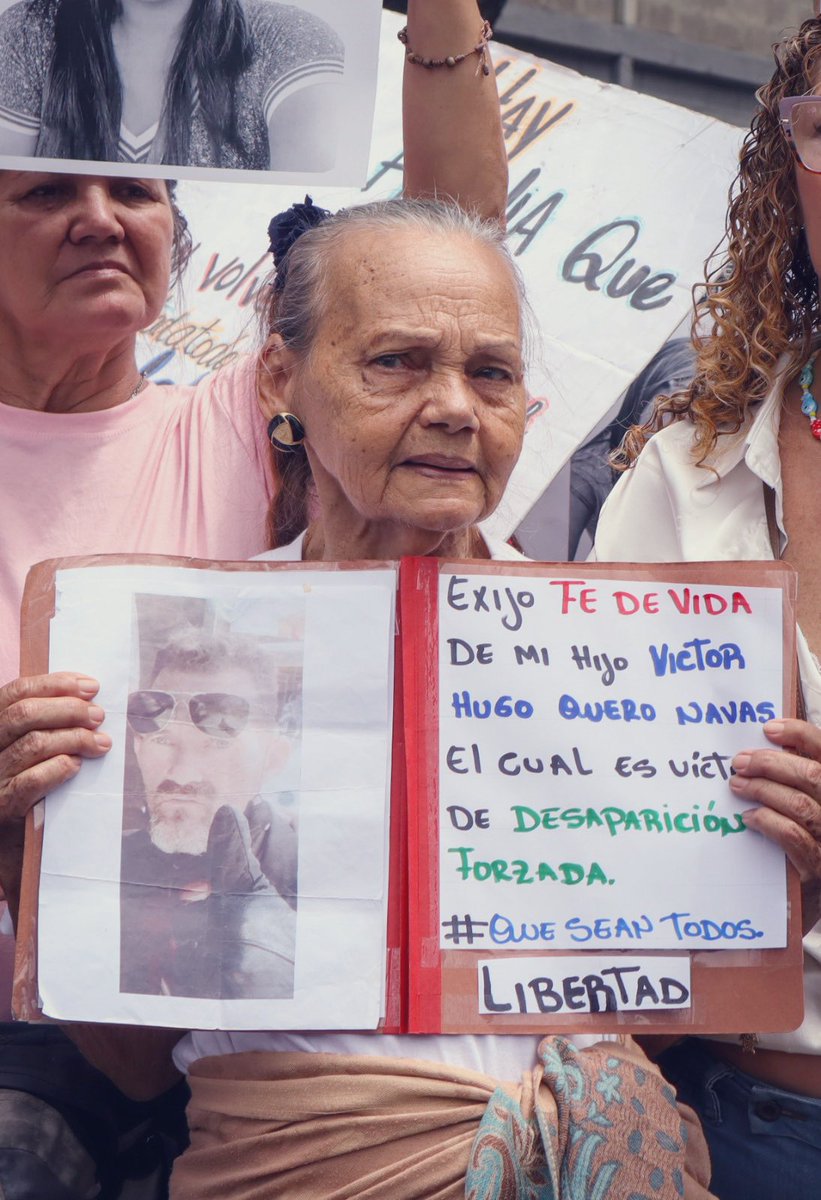 HAY
QUE
volv
Exijo FE DE VIDA
DE MI HIJO VICTOR
HUGO QUERO NAVAS
El CUAL ES VÍCT
DE DESAPARICIÓN
FORZADA.
#QUE SEAN TODOS.
LIBERTAD